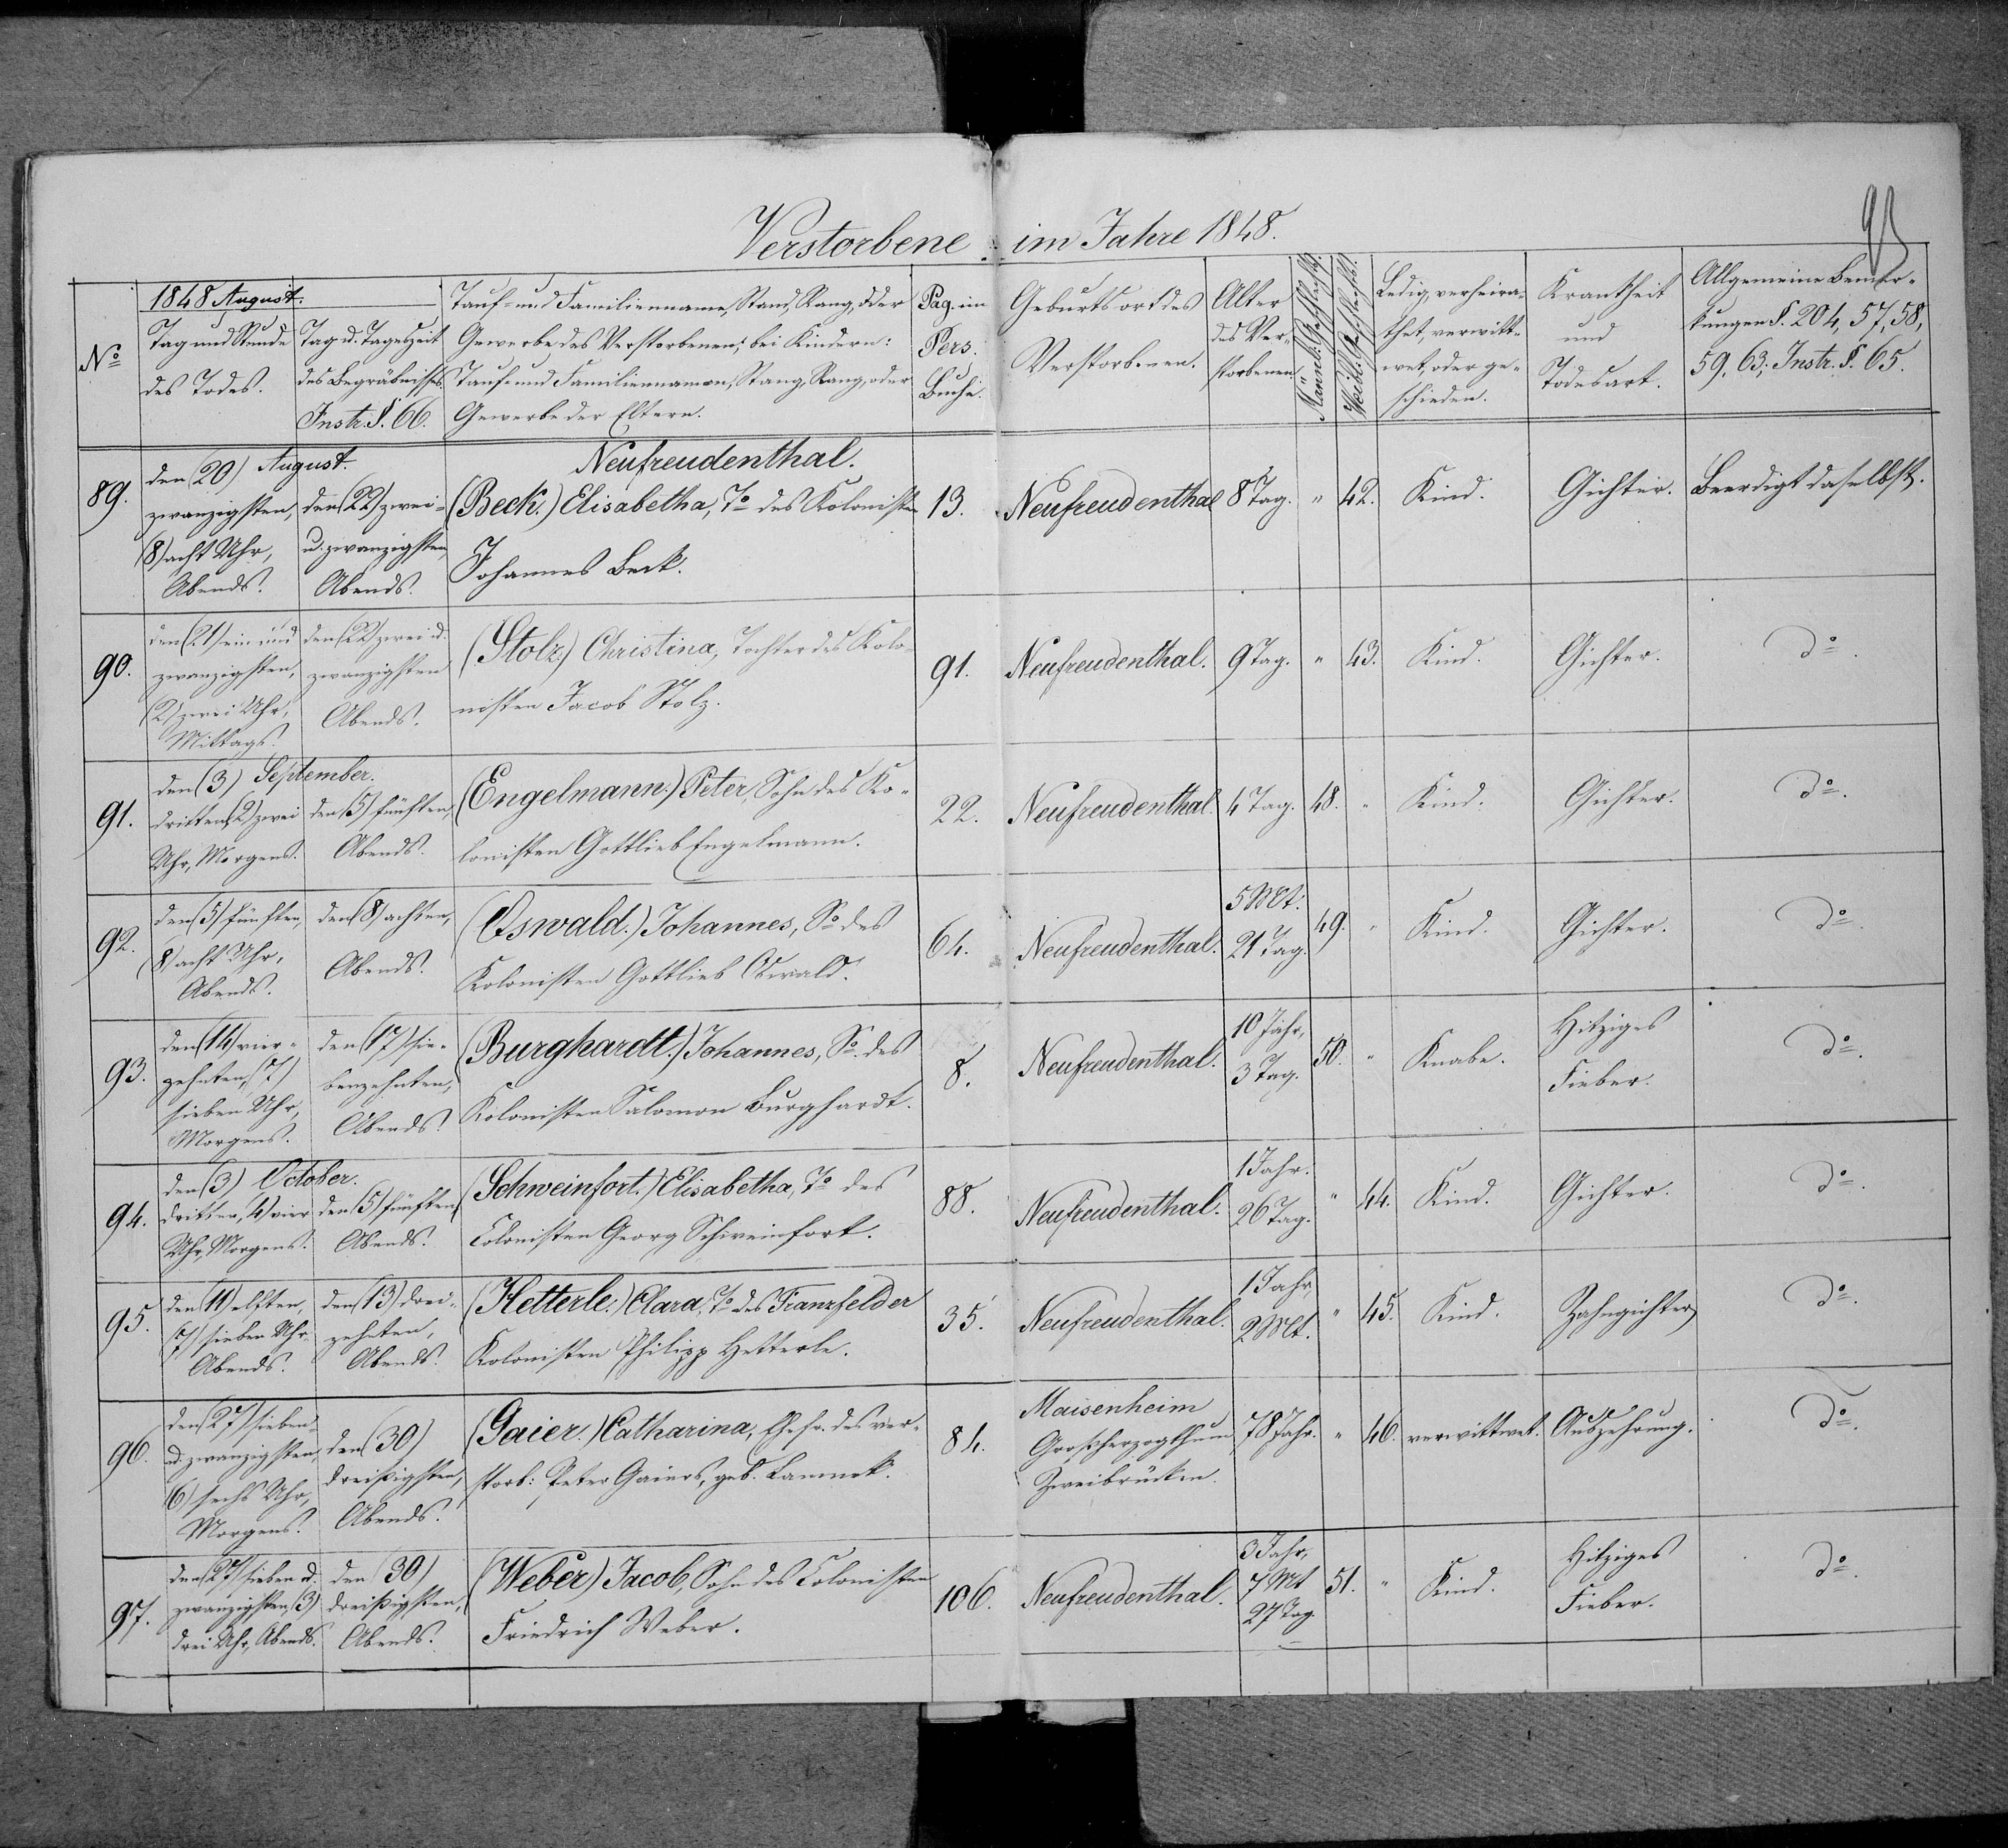 93
Verstorbene im Jahre 1848.
No
1848 August.
Tag und Stunde
des Todes.
Tag u. Tageszeit
des Begräbnisses
Instr. §. 66.
Tauf- und Familienname, Stand, Rang, oder
Gewerbe des Verstorbenen; bei Kindern:
Tauf- und Familiennamen, Stang, Rang, oder
Gewerbe der Eltern.
Pag. im
Pers.
Buche.
Geburtsort des
Verstorbenen.
Alter
des Ver-
storbenen
Männl. Geschlecht.
Weibl. Geschlecht.
Ledig, verheira-
thet, verwitt-
wet, oder ge-
schieden.
Krankheit
und
Todesart.
Allgemeine Bemer-
kungen §. 204, 57, 58,
59, 63; Instr. §. 65.
Neufreudenthal.
89.
den (20) August.
zwanzigsten,
(8) acht Uhr,
Abends.
den (22) zwei-
u. zwanzigsten,
Abends.
(Beck.) Elisabetha, To des Kolonisten
Johannes Beck.
13.
Neufreudenthal
8 Tag.
"
42.
Kind.
Gichter.
Beerdigt daselbst.
90.
den (21) ein und
zwanzigsten,
(2) zwei Uhr,
Mittags.
den (22) zwei u.
zwanzigsten
Abends.
(Stolz.) Christina, Tochter des Kolo-
nisten Jacob Stolz.
91.
Neufreudenthal.
9 Tag.
"
43.
Kind.
Gichter.
do.
91.
den (3) September.
dritten (2) zwei
Uhr, Morgens.
den (5) fünften,
Abends.
(Engelmann.) Peter, Sohn des Ko-
lonisten Gottlieb Engelmann.
22.
Neufreudenthal.
4 Tag.
48.
"
Kind.
Gichter.
do.
92.
den (5) fünften,
(8) acht Uhr,
Abends.
den (8) achten,
Abends.
(Oswald.) Johannes, So. des
Kolonisten Gottlieb Oswald.
64.
Neufreudenthal.
5 Mt.
21 Tag.
49.
"
Kind.
Gichter.
do.
93.
den (14) vier-
zehnten, (7)
sieben Uhr,
Morgens.
den (17) sie-
benzehnten,
Abends.
(Burghardt.) Johannes, So. des
Kolonisten Salomon Burghardt.
8.
Neufreudenthal.
10 Jahr,
3 Tag.
50.
"
Knabe.
Hitziges
Fieber.
do.
94.
den (3) October.
dritten, (4) vier
Uhr, Morgens.
den (5) fünften
Abends.
(Schweinfort.) Elisabetha, To des
Colonisten Georg Schweinfort.
88.
Neufreudenthal.
1 Jahr.
26 Tag.
"
44.
Kind.
Gichter.
do.
95.
den (11) elften,
(7) sieben Uhr.
Abends.
den (13) drei-
zehnten,
Abends.
(Hetterle.) Clara, To des Franzfelder
Kolonisten Philipp Hetterle.
35.
Neufreudenthal.
1 Jahr,
2 Mt.
"
45.
Kind.
Zahngichter,
do.
96.
den (27) sieben-
u. zwanzigsten,
(6) sechs Uhr,
Morgens.
den (30)
dreißigsten,
Abends.
(Gaier.) Catharina, Ehefr. des ver-
storb: Peter Gaiers, geb.
84.
Maisenheim
Großherzogthum
Zweibrücken.
78 Jahr.
"
46.
verwittwet.
Auszehrung.
do.
97.
den (27) sieben u.
zwanzigsten, (3)
drei Uhr, Abends.
den (30)
dreißigsten,
Abends.
(Weber) Jacob, Sohn des Colonisten
Friedrich Weber.
106.
Neufreudenthal.
3 Jahr,
7 Mt
27 Tag.
51.
"
Kind.
Hitziges
Fieber.
do.